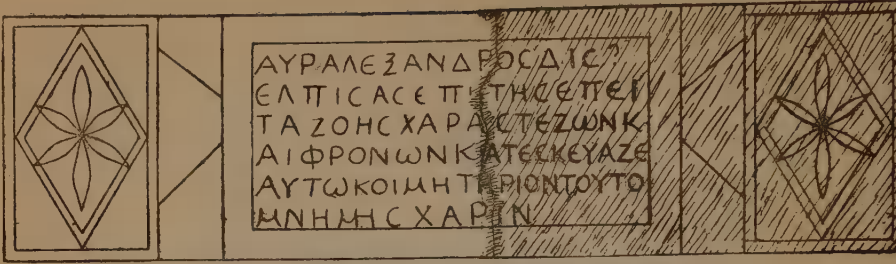 ΑΥΡΑΛΕΞΑΝΔΡΟϹΔΙϹ?
ΕΛΠΙϹΑϹΕΠΙΤΗϹΕΠΕΙ
ΤΑΖΟΗϹΧΑΡΑϹΤΕΖΩΝΚ
ΑΙΦΡΟΝΩΝΚΑΤΕϹΚΕΥΑΖΕ
ΑΥΤΩΚΟΙΜΗΤΗΡΙΟΝΤΟΥΤΟ
ΜΝΗΜΗϹΧΑΡΙΝ